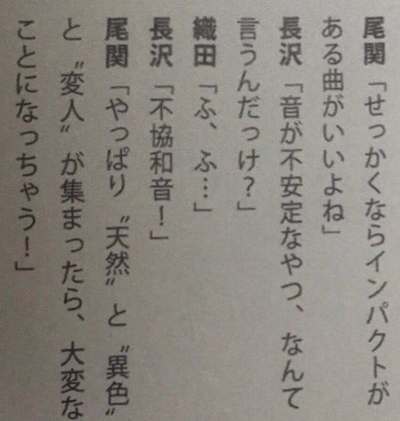 尾関「せっかくならインパクトが
ある曲がいいよね」
長沢「音が不安定なやつ、なんて
言うんだっけ？」
織田「ふ、ふ…」
長沢「不協和音！」
尾関「やっぱり〝天然〟と〝異色〟
と〝変人〟が集まったら、大変な
ことになっちゃう！」